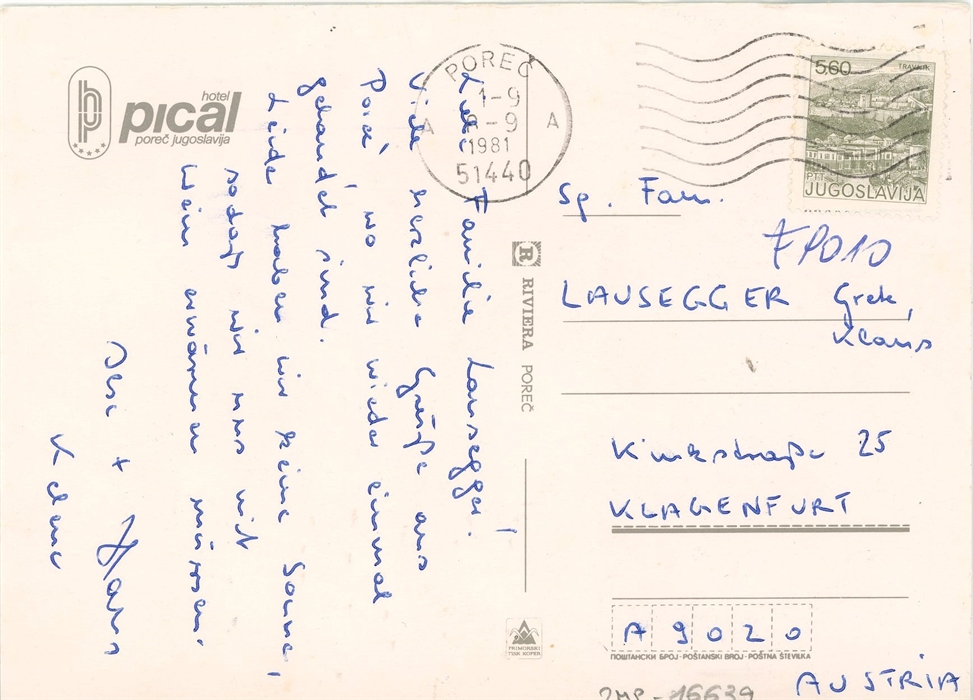 hotel
pical
poreč jugoslavija
POREČ
1-9
9-9
A A
1981
51440
5,60
TRAVNIK
PTT
JUGOSLAVIJA
Liebe Familie Lausegger!
Viele herzliche Grüße aus
Poreč, wo wir wieder einmal
gelandet sind.
Leider haben wir keine Sonne,
sodaß wir uns mit
Wein erwärmen müssen.
+ Hans
RIVIERA POREČ
Sp. Fam.
LAUSEGGER Grete,
Klaus
Kinkstraße 25
KLAGENFURT
A 9020
ПОШТАНСКИ БРОЈ-POŠTANSKI BROJ-POŠTNA ŠTEVILKA
AUSTRIA
PRIMORSKI
TISK KOPER
16639